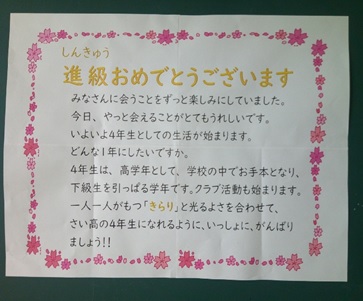 しんきゅう
進級おめでとうございます
みなさんに会うことをずっと楽しみにしていました。
今日、やっと会えることがとてもうれしいです。
いよいよ4年生としての生活が始まります。
どんな1年にしたいですか。
4年生は、高学年として、学校の中でお手本となり、
下級生を引っぱる学年です。クラブ活動も始まります。
一人一人がもつ「きらり」と光るよさを合わせて、
さい高の4年生になれるように、いっしょに、がんばり
ましょう!!